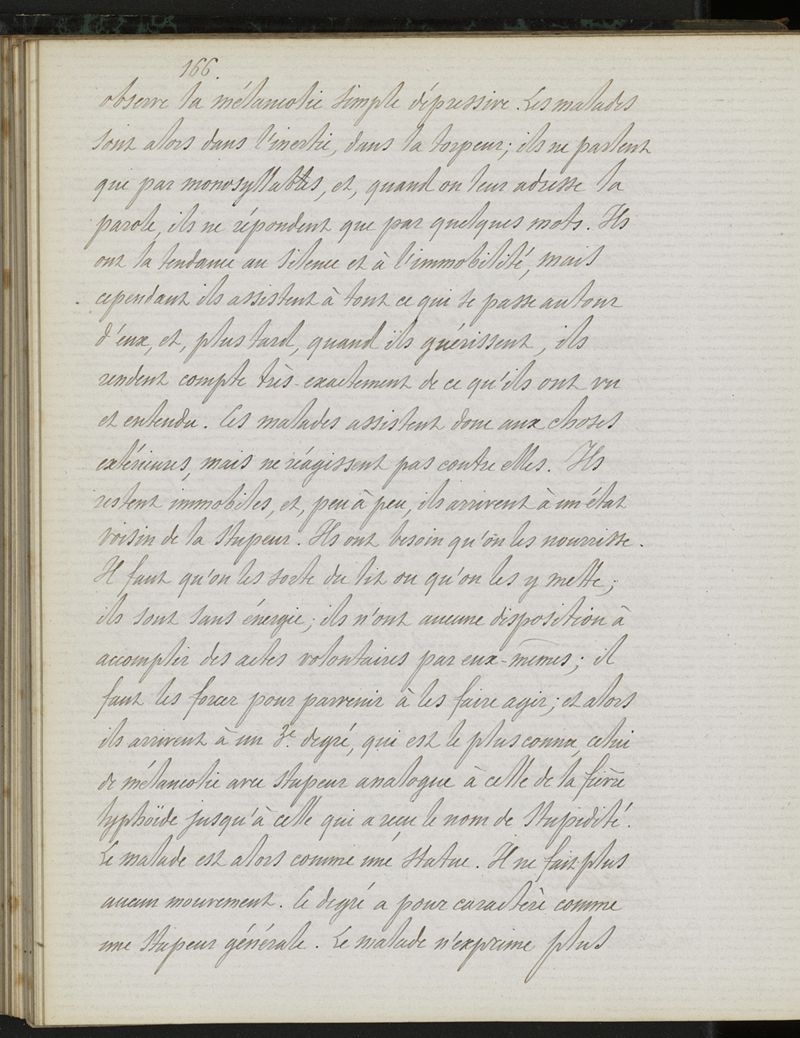 166.
observe la mélancolie simple dépressive. Les malades
sont alors dans l'inertie, dans la torpeur; ils ne parlent
que par monosyllabes, et, quand on leur adresse la
parole, ils ne répondent que par quelques mots. Ils
ont la tendance au silence et à l'immobilité, mais
cependant ils assistent à tout ce qui se passe autour
d'eux, et, plus tard, quand ils guérissent, ils
rendent compte très-exactement de ce qu'ils ont vu
et entendu. Ces malades assistent donc aux choses
extérieures, mais ne réagissent pas contre elles. Ils
restent immobiles, et, peu à peu, ils arrivent à un état
voisin de la stupeur. Ils ont besoin qu'on les nourrisse.
Il faut qu'on les sorte du lit ou qu'on les y mette;
ils sont sans énergie; ils n'ont aucune disposition à
accomplir des actes volontaires par eux-mêmes; il
faut les forcer pour parvenir à les faire agir; et alors
ils arrivent à un 3e. degré, qui est le plus connu, celui
de mélancolie avec stupeur analogue à celle de la fièvre
typhoïde jusqu'à celle qui a reçu le nom de Stupidité.
Le malade est alors comme une statue. Il ne fait plus
aucun mouvement. Ce degré a pour caractère comme
une stupeur générale. Le malade n'exprime plus